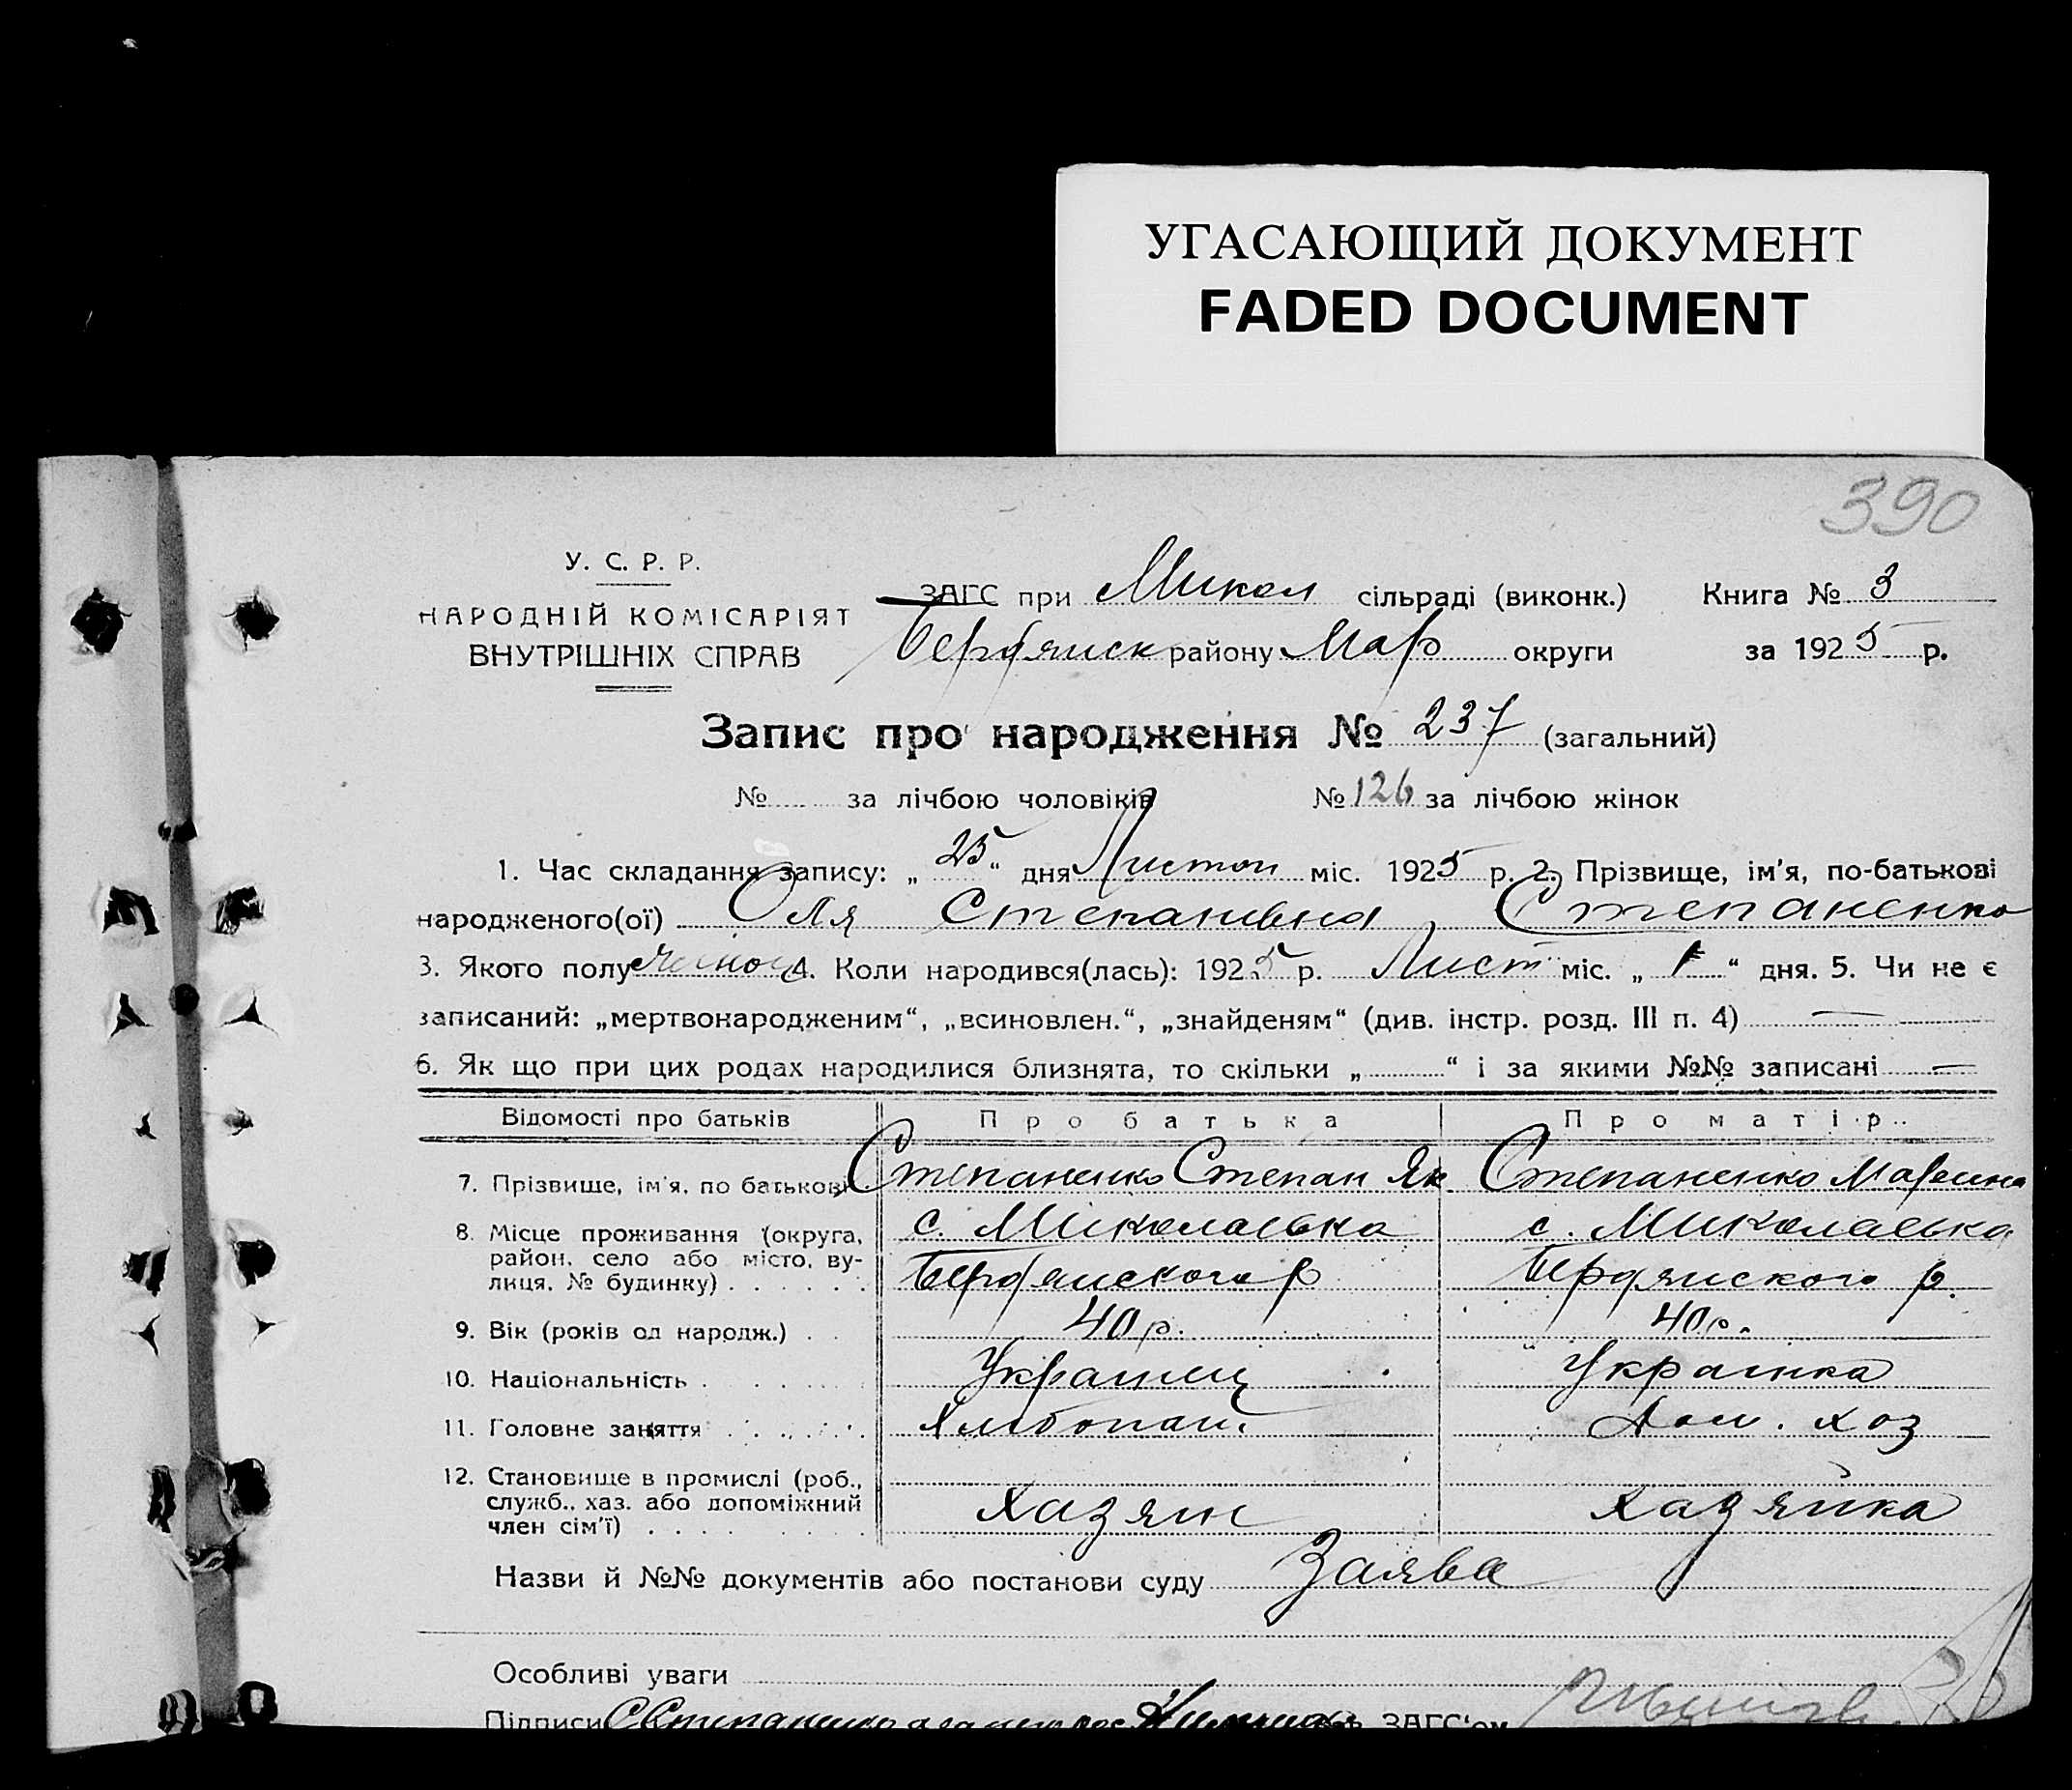 УГАСАЮЩИЙ ДОКУМЕНТ
FADED DOCUMENT
390
У. С. Р. Р.
НАРОДНІЙ КОМІСАРІЯТ
ВНУТРІШНІХ СПРАВ
ЗАГС при Микол сільраді (виконк.) Книга № 3
Бердянск району Мар округи за 1925 р.
Запис про народження № 237 (загальний)
№ за лічбою чоловіків № 126 за лічбою жінок
1. Час складання запису: „25“ дня Листоп міс. 1925 р. 2. Прізвище, ім'я, по-батькові
народженого(ої) Оля Степанивна Степаненко
3. Якого полу жіноч 4. Коли народився(лась): 1925 р. Лист міс. „1“ дня. 5. Чи не є
записаний: „мертвонародженим“, „всиновлен.“, „знайденям“ (див. інстр. розд. III п. 4) —
6. Як що при цих родах народилися близнята, то скільки „ “ і за якими №№ записані —
Відомості про батьків Про батька Про матір
7. Прізвище, ім'я, по батькові Степаненко Степан Як. Степаненко Марина
8. Місце проживання (округа, с. Миколаевка с. Миколаевка
район, село або місто, ву-
лиця, № будинку) Бердянского р Бердянского р.
9. Вік (років од народж.) 40 р. 40 р.
10. Національність Украинец Украинка
11. Головне заняття Хлибопаш. Дом. хоз
12. Становище в промислі (роб.,
служб., хаз. або допоміжний Хазяин Хазяйка
член сім'ї)
Назви й №№ документів або постанови суду Заява
Особливі уваги
Підписи С Степаненко ЗАГС'ом